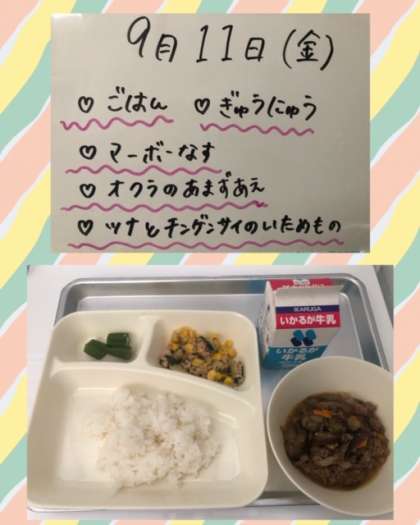 9月11日(金)
♡ ごはん ♡ ぎゅうにゅう
♡ マーボーなす
♡ オクラのあまずあえ
♡ ツナとチンゲンサイのいためもの
IKARUGA
いかるが牛乳
いかるが
牛乳